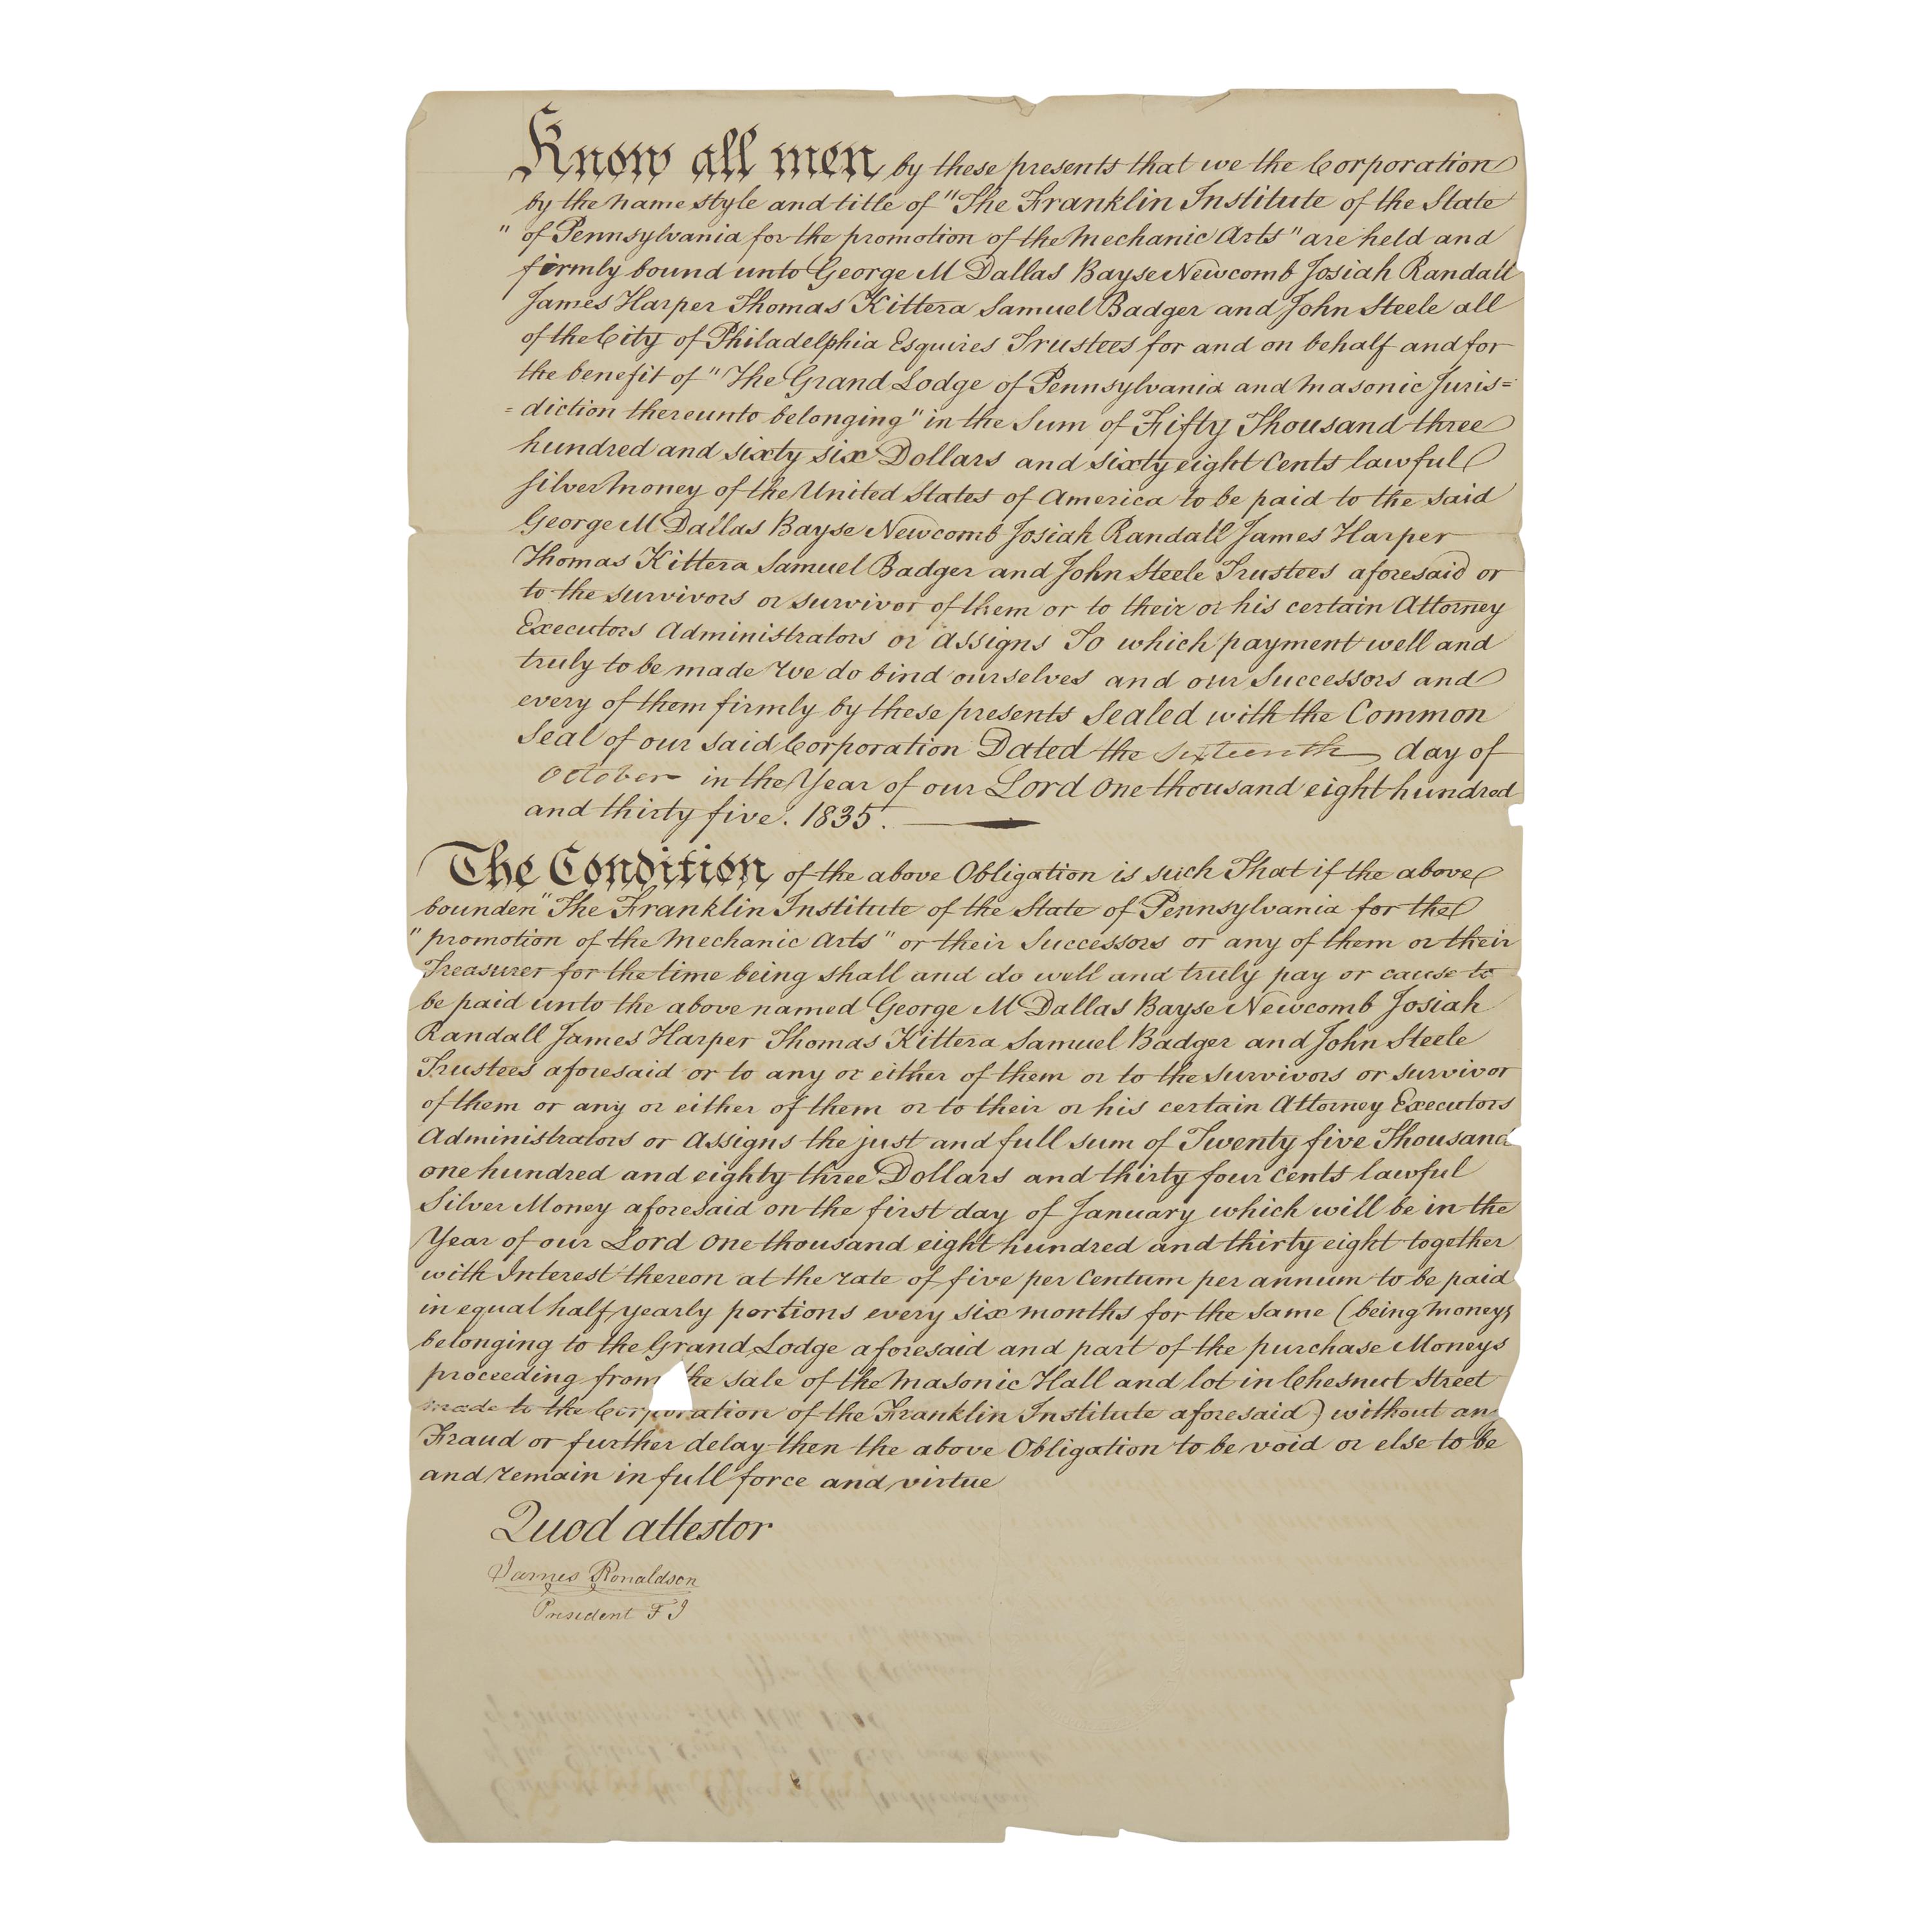 Know all men by these presents that we the Corporation
by the name style and title of "The Franklin Institute of the State
" of Pennsylvania for the promotion of the Mechanic Arts" are held and
firmly bound unto George M Dallas Bayse Newcomb Josiah Randall
James Harper Thomas Kittera Samuel Badger and John Steele all
of the City of Philadelphia Esquires Trustees for and on behalf and for
the benefit of "The Grand Lodge of Pennsylvania and Masonic Juris=
= diction thereunto belonging" in the Sum of Fifty Thousand three
hundred and sixty six Dollars and sixty eight Cents lawful
silver Money of the United States of America to be paid to the said
George M Dallas Bayse Newcomb Josiah Randall James Harper
Thomas Kittera Samuel Badger and John Steele Trustees aforesaid or
to the survivors or survivor of them or to their or his certain Attorney
Executors Administrators or Assigns To which payment well and
truly to be made we do bind ourselves and our Successors and
every of them firmly by these presents Sealed with the Common
Seal of our said Corporation Dated the sixteenth day of
October in the Year of our Lord One thousand eight hundred
and thirty five. 1835.
The Condition of the above Obligation is such That if the above
bounden "The Franklin Institute of the State of Pennsylvania for the
" promotion of the Mechanic Arts" or their Successors or any of them or their
Treasurer for the time being shall and do well and truly pay or cause to
be paid unto the above named George M Dallas Bayse Newcomb Josiah
Randall James Harper Thomas Kittera Samuel Badger and John Steele
Trustees aforesaid or to any or either of them or to the survivors or survivor
of them or any or either of them or to their or his certain Attorney Executors
Administrators or Assigns the just and full sum of Twenty five Thousand
one hundred and eighty three Dollars and thirty four Cents lawful
Silver Money aforesaid on the first day of January which will be in the
Year of our Lord One thousand eight hundred and thirty eight together
with Interest thereon at the rate of five per Centum per annum to be paid
in equal half yearly portions every six months for the same (being moneys
belonging to the Grand Lodge aforesaid and part of the purchase Moneys
proceeding from the sale of the Masonic Hall and lot in Chesnut Street
made to the Corporation of the Franklin Institute aforesaid) without any
Fraud or further delay then the above Obligation to be void or else to be
and remain in full force and virtue
Quod attestor
James Ronaldson
President F I